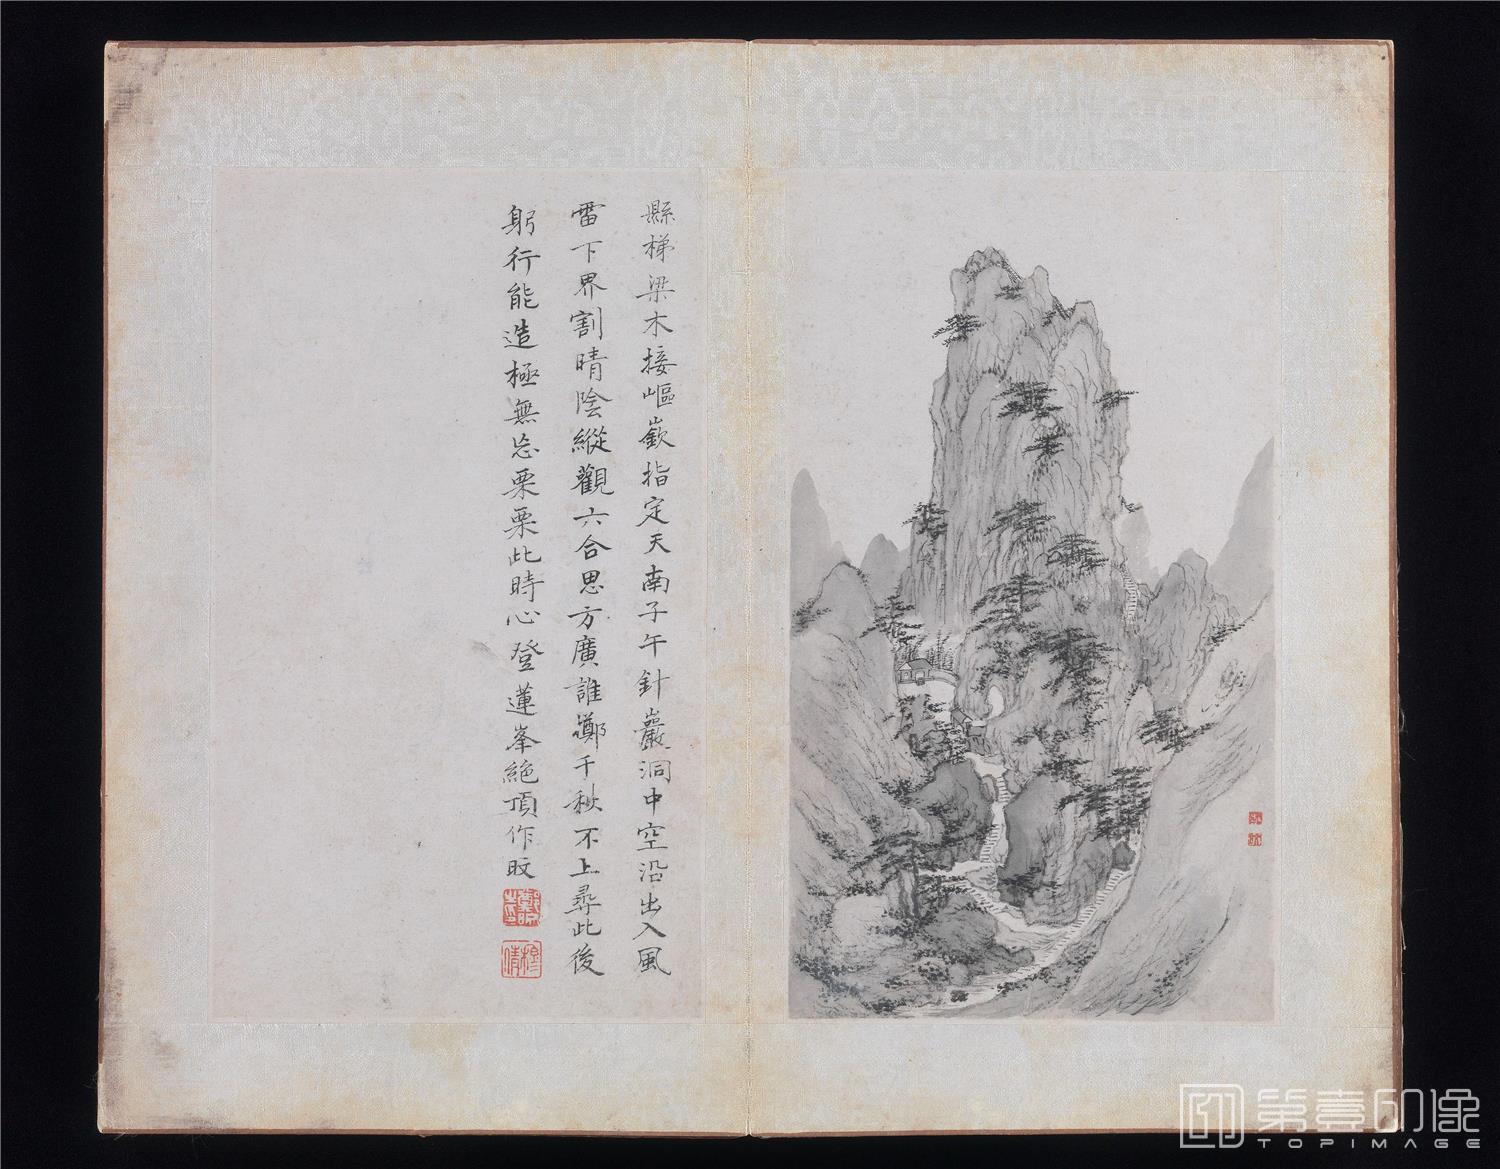 縣梯梁木接嶇嶔指定天南子午針巖洞中空沿出入風
雷下界割晴陰縱觀六合思方廣誰擲千秋不上尋此後
躬行能造極無忘栗栗此時心登蓮峯絕頂作旼
第壹印像
TOPIMAGE